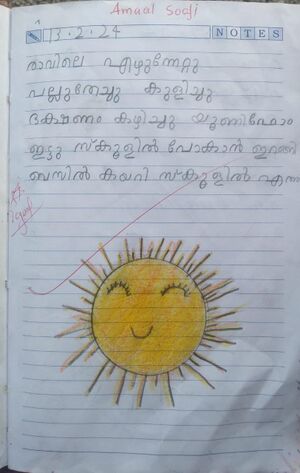 Amaal Soofi
13.2.24
NOTES
രാവിലെ എഴുന്നേറ്റു
പല്ലുതേച്ചു കുളിച്ചു
ഭക്ഷണം കഴിച്ചു യൂണിഫോം
ഇട്ടു സ്കൂളിൽ പോകാൻ ഇറങ്ങി
ബസിൽ കയറി സ്കൂളിൽ എത്തി